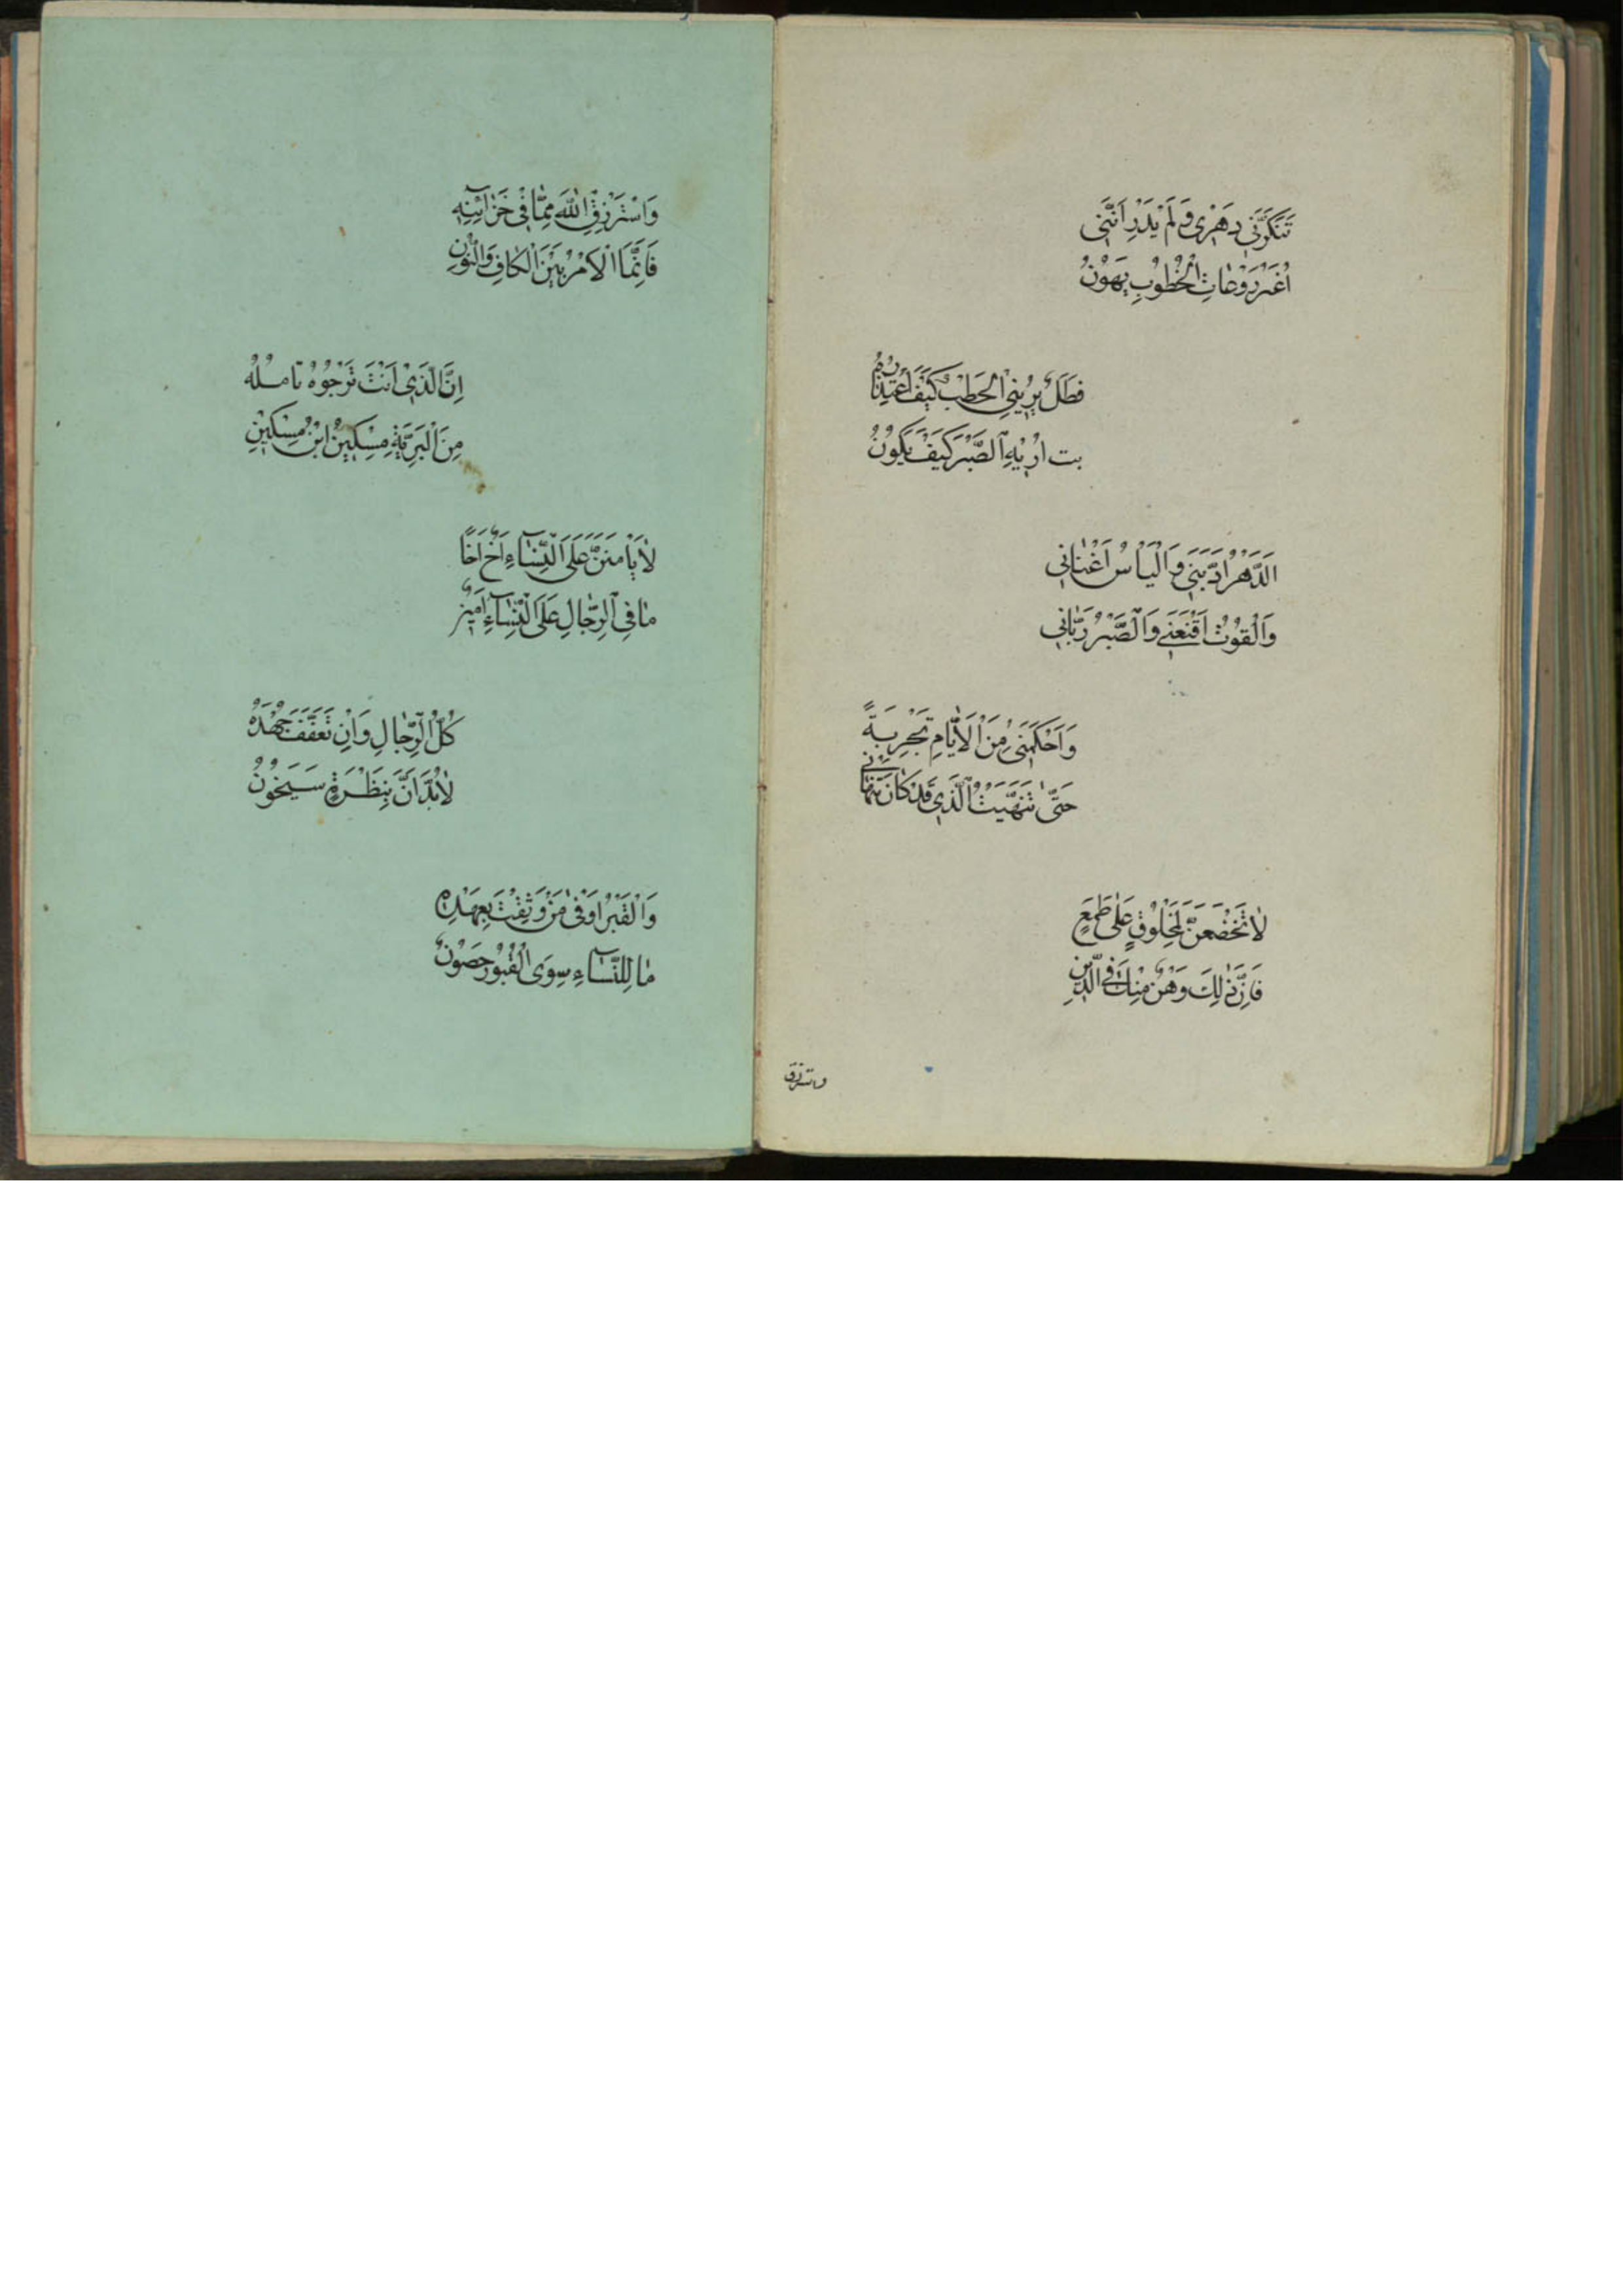 تَنَكَّرَنِّي دَهْرِي وَلَمْ يَدْرِ اَنَّنِي
اُغَرُّ رَوْعَاتِ الْخُطُوْبِ يَهُوْنُ
فظَلَّ يُرِيْنِي الْخَطْبُ كَيْفَ
بت ارُيْهِ الصَّبْرَ كَيْفَ يَكُوْنُ
اَلدَّهْرُ اَدَّبَنِي وَالْيَأْسُ اَغْنَانِي
وَالْقُوْتُ اَقْنَعَنِي وَالصَّبْرُ رَبَّانِي
وَاَحْكَمَتْنِي مِنَ الْاَيَّامِ تَجْرِبَةً
حَتّٰى نَهَيْتُ الَّذِي قَدْ كَانَ يَنْهَانِي
لَا تَخْضَعَنَّ لِمَخْلُوْقٍ عَلٰى طَمَعٍ
فَاِنَّ ذٰلِكَ وَهْنٌ مِنْكَ فِي الدِّيْنِ
واسترزق
وَاسْتَرْزِقِ اللّٰهَ مِمَّا فِي خَزَآئِنِهِ
فَاِنَّمَا الْاَمْرُ بَيْنَ الْكَافِ وَالنُّوْنِ
اِنَّ الَّذِي اَنْتَ تَرْجُوْهُ تامُلُهُ
مِنَ الْبَرِيَّةِ مِسْكِيْنُ ابْنُ مِسْكِيْنِ
لَا يَأْمَنَنَّ عَلَى النِّسَآءِ اَخٌ اَخًا
مَا فِي الرِّجَالِ عَلَى النِّسَآءِ اَمِيْنٌ
كُلُّ الرِّجَالِ وَاِنْ تَعَفَّفَ جُهْدَهُ
لَا بُدَّ اَنَّ بِنَظْرَةٍ سَيَخُوْنُ
وَالْقَبْرُ اَوْفٰى مَنْ وَثِقْتَ بِعَهْدِهِ
مَا لِلنِّسَآءِ سِوَى الْقُبُوْرِ حُصُوْنٌ